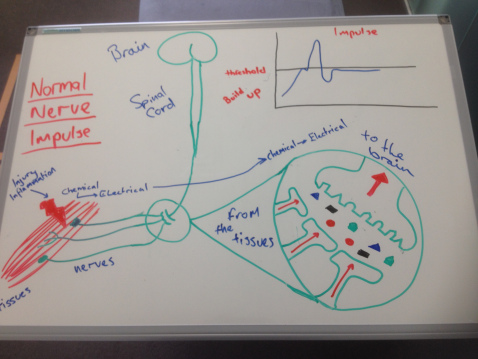 Brain
Impulse
Normal
Nerve
Impulse
Spinal
Cord
threshold
Build up
Injury
Inflammation
Chemical
Electrical
Chemical → Electrical
to the
brain
from
the
tissues
nerves
tissues